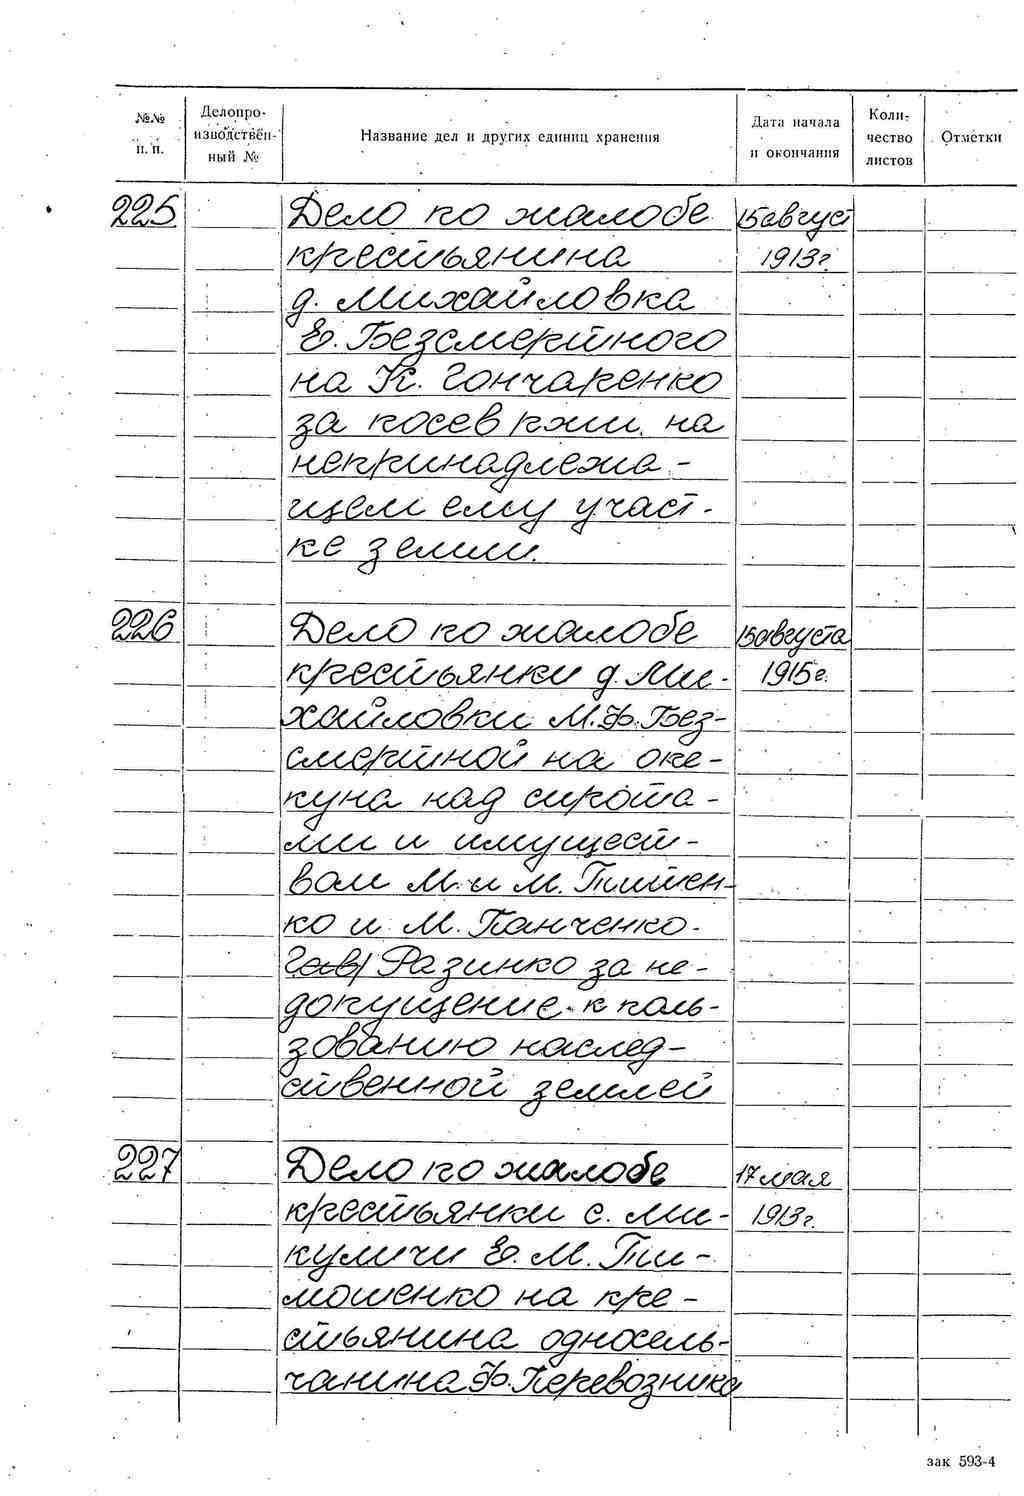 №№ п. п. | Делопроизводствен- ный № | Название дел и других единиц хранения | Дата начала и окончания | Коли- чество листов | Отметки
225 Дело по жалобе 15 август
крестьянина 1913г.
д. Михайловка
Е. Безсмертного
на К. Гончаренко
за посев ржи на
непринадлежа-
щем ему участ-
ке земли.
226 Дело по жалобе 15 августа
крестьянки д. Ми- 1915г.
хайловки М.Ф. Без-
смертной на опе-
куна над сирота-
ми и имущест-
вом М. и М. Титен-
ко и М. Панченко-
Разинко за не-
допущение к поль-
зованию наслед-
ственной землей
227 Дело по жалобе 17 мая
крестьянки с. Ми- 1913г.
куличи Е. М. Ти-
мошенко на кре-
стьянина односель-
чанина Ф. Перевозника
зак 593-4